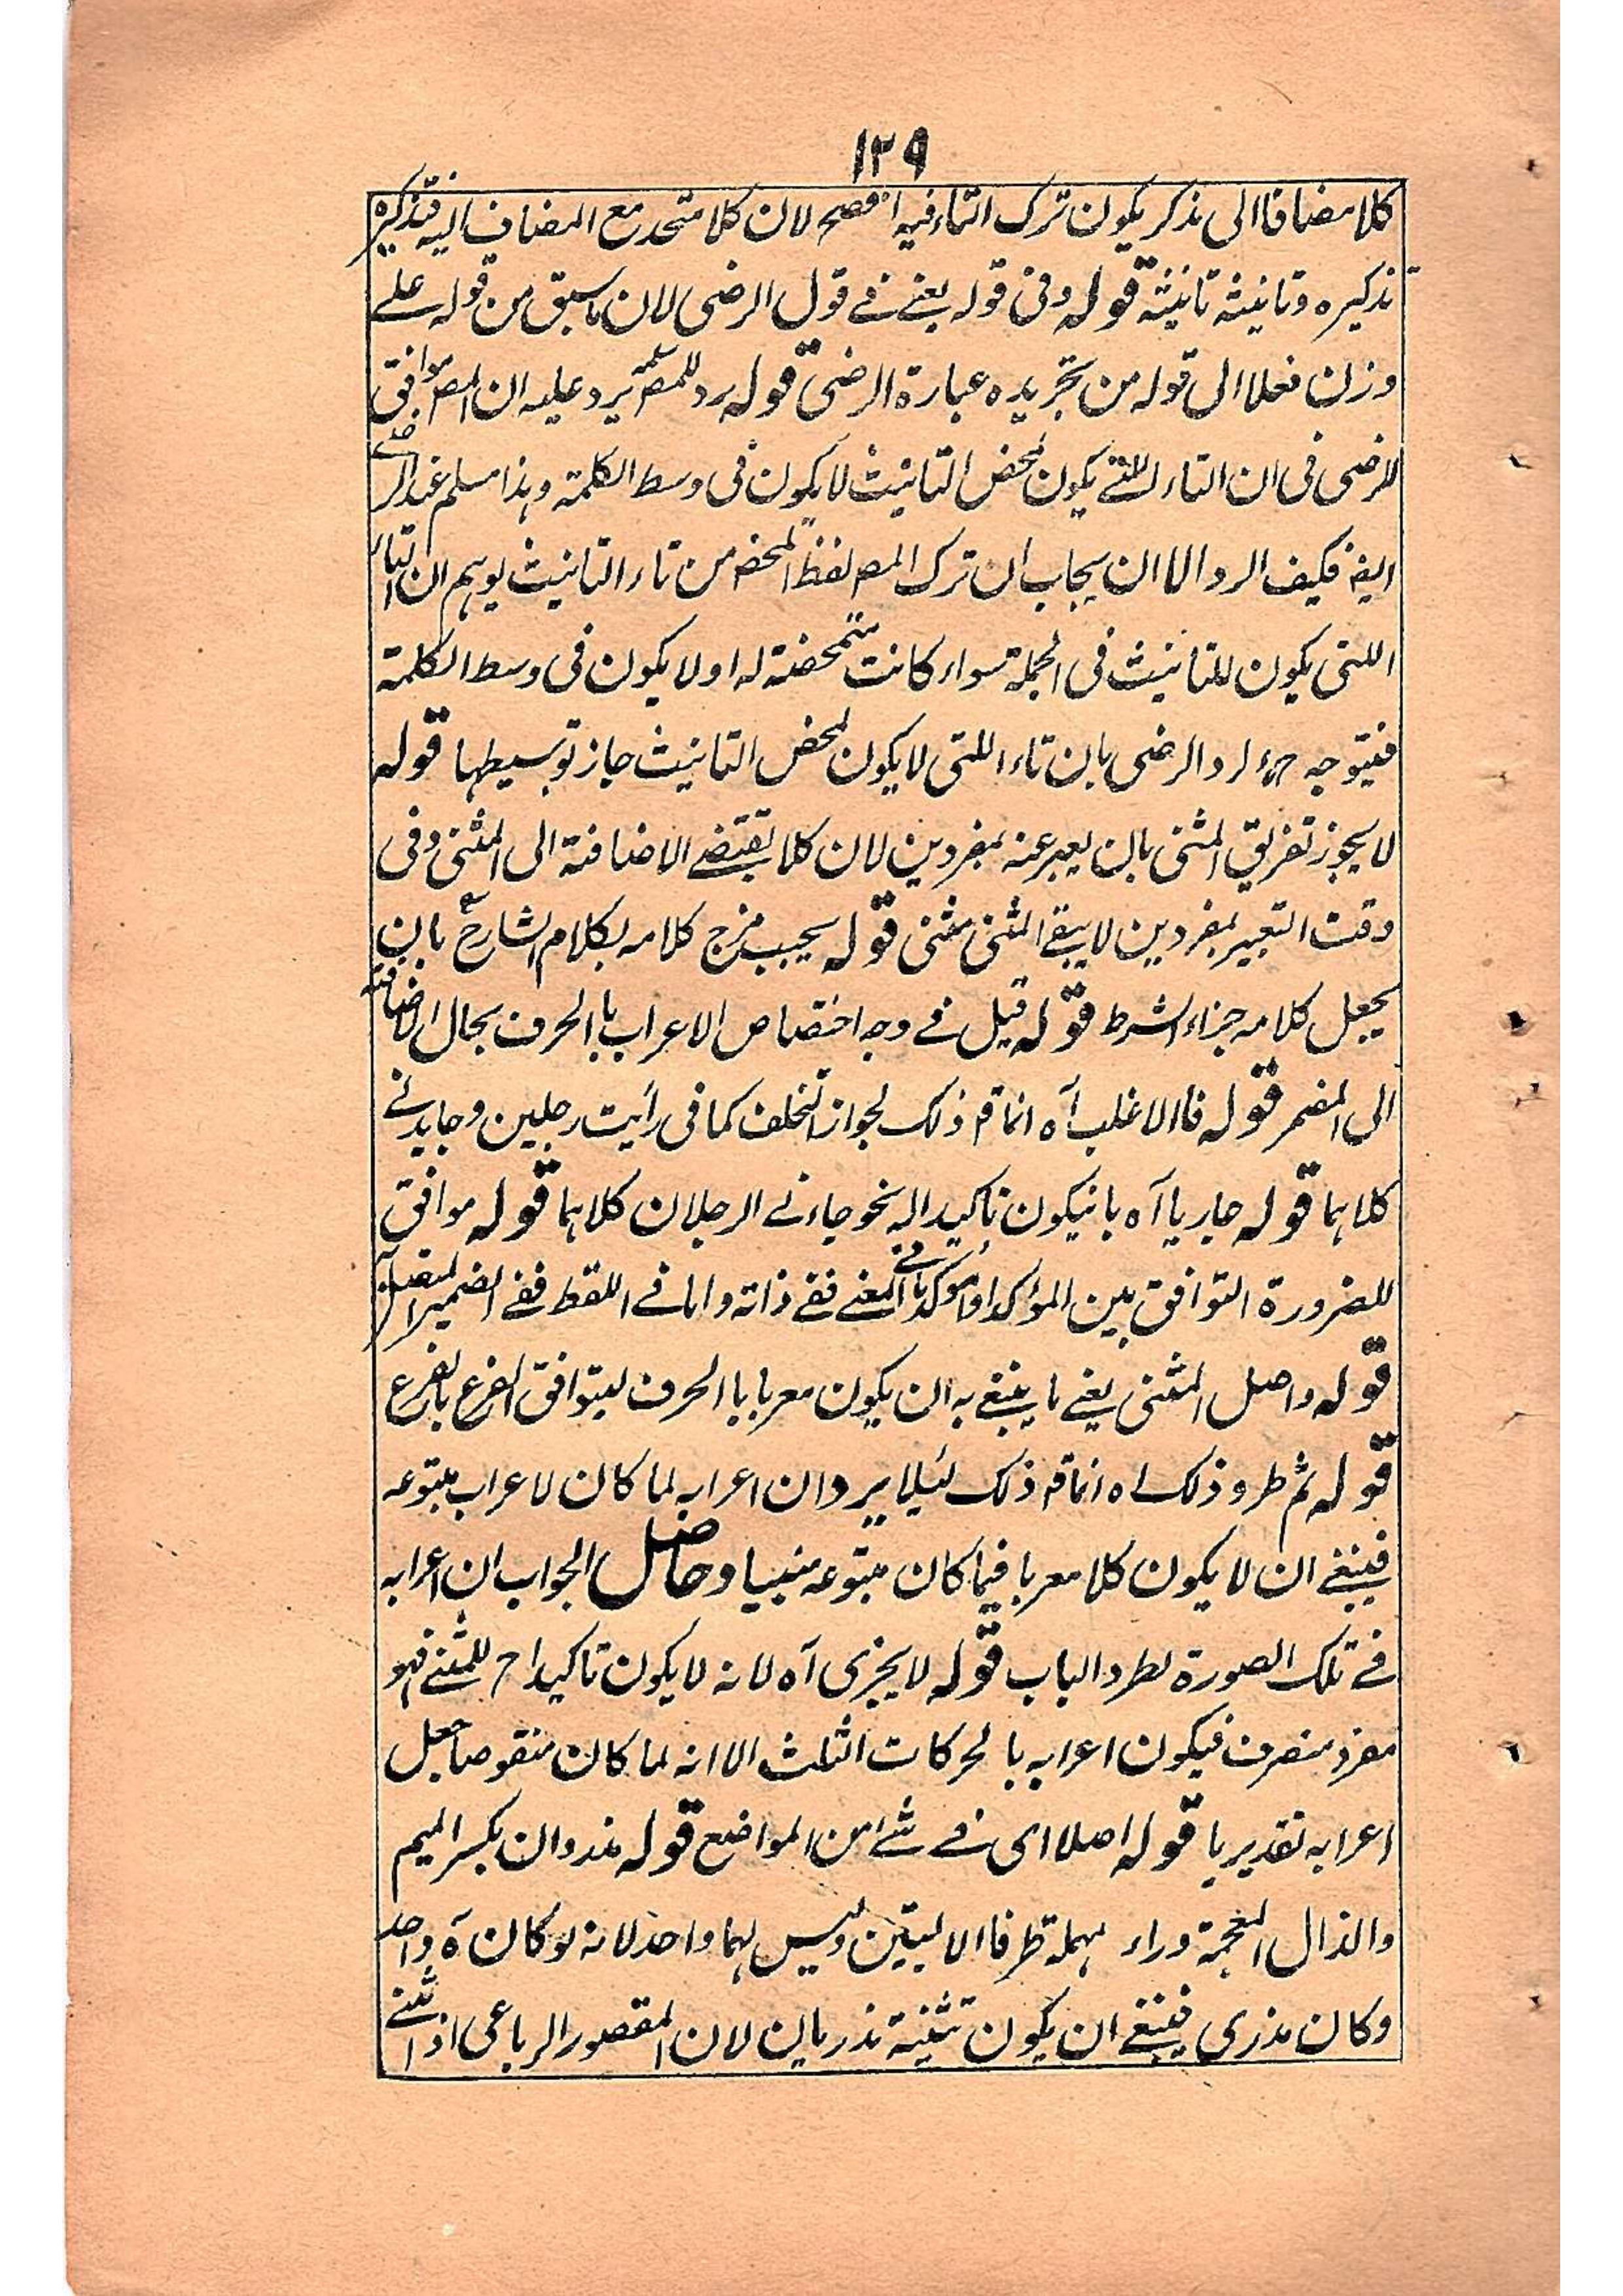 ١٢٩
كلا مضافا الى مذكر يكون ترك التاء فيه افصح لان كلا متحد مع المضاف اليه فتذكيره
تذكيره وتانيثه تانيثه قوله وفى قوله يعنے فے قول الرضى لان ما سبق من قوله علے
وزن فعلا الى قوله من تجريده عبارة الرضى قوله رد للمصر يرد عليه ان المصر موافق
للرضى فى ان التاء اللتے يكون لمحض التانيث لا يكون فى وسط الكلمة وہذا مسلم عند الرضے
ايضہ فكيف الرد الا ان يجاب ان ترك المصہ لفظ المحضہ من تاء التانيث يوہم ان التاء
اللتى يكون للتانيث فى الجملة سواء كانت متمحضة له او لا يكون فى وسط الكلمة
فيتوجه ح لرد الرضى بان تاء اللتى لا يكون لمحض التانيث جاز توسيطہا قوله
لا يجوز تفريق المثنى بان يعبر عنه بمفردين لان كلا يقتضے الاضافة الى المثنى وفى
وقت التعبير بمفردين لا يبقے المثنى مثنى قوله يجيب مزج كلامه بكلام الشارح بان
يجعل كلامه جزاء الشرط قوله قيل فے وجه اختصاص الاعراب باالحرف بحال الاضافة
الى المضمر قوله فاالاغلب آه انما قہ ذلك لجواز التخلف كما فى رأيت رجلين وجاءنے
كلاہما قوله جاريا آه بانيكون تاكيدا له نحو جاءنے الرجلان كلاہما قوله موافق
للضرورة التوافق بين المؤكد والموكد اما فے المعنے ففے ذاته واما فے اللفظ ففے الضمير المتصل
قوله واصل المثنى يعنے ما ينبغے به ان يكون معربا باالحرف ليتوافق الفرع بالفرع
قوله ثم طرد ذلك اه انما قہ ذلك لئيلا يرد ان اعرابه لما كان لاعراب متبوعه
فينبغے ان لا يكون كلا معربا فيما كان متبوعه مبنيا وحاصل الجواب ان اعرابه
فے تلك الصورة لطرد الباب قوله لا يجزى آه لانه لا يكون تاكيدا ح للمثنے فہو
مفرد منصرف فيكون اعرابه بالحركات الثلث الا انه لما كان منقوصا جعل
اعرابه تقديريا قوله اصلا اى فے شے من المواضع قوله مذروان بكسر الميم
والذال المعجمة وراء مہملة طرفا الاليتين وليس لہما واحد لانه لو كان ه واحد
وكان مذرى فينبغے ان يكون تثنية مذريان لان المقصور الرباعى اذا ثنے